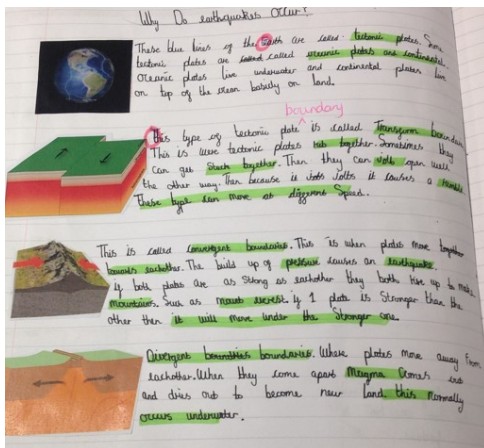 Why Do earthquakes Occur?
These blue lines of the Earth are called tectonic plates. Some
tectonic plates are called called oceanic plates and continental.
Oceanic plates live underwater and continental plates live
on top of the ocean basicly on land.
boundary
This type of tectonic plate is called Transform boundary
This is were tectonic plates rub together. Sometimes they
can get stuck together. Then they can volt open well
the other way. Then because it jolts it causes a
These type can move at different speed.
This is called convergent boundaries. This is when plates move together
towards eachother. The build up of pressure causes an earthquake.
If both plates are as strong as eachother they both rise up to make
mountains. Such as mount everest. if 1 plate is stronger than the
other then it will move under the stronger one.
Divergent boundries boundaries. Where plates move away from
eachother. When they come apart Magma comes out
and dries out to become new land this normally
occurs underwater.